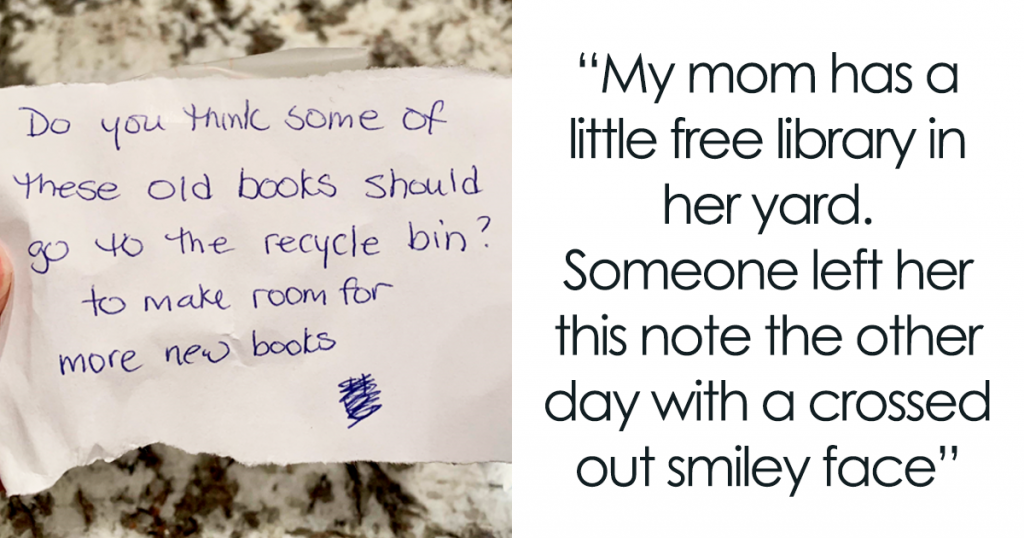 Do you think some of
these old books should
go to the recycle bin?
to make room for
more new books
“My mom has a
little free library in
her yard.
Someone left her
this note the other
day with a crossed
out smiley face”